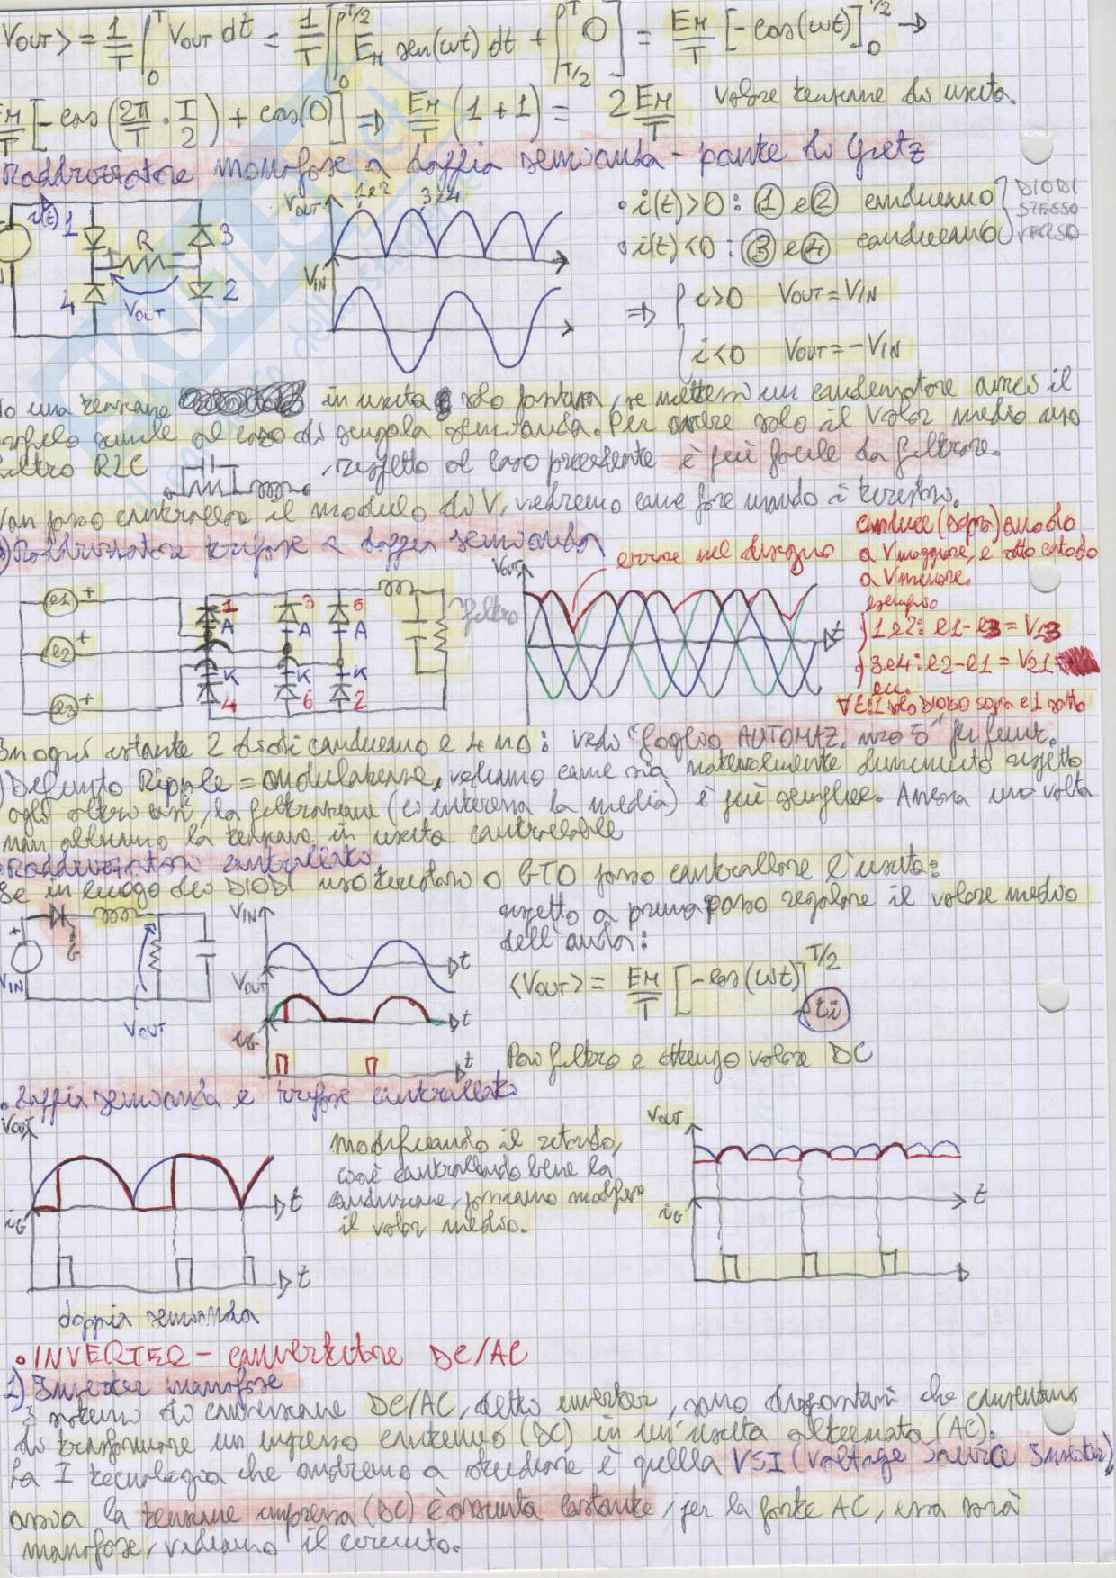 VOUT> = 1/T ∫₀ᵀ VOUT dt = 1/T [∫₀^T/2 EM sen(ωt) dt + ∫_T/2^T 0] = EM/T [-cos(ωt)]₀^T/2 →
EM/T [-cos(2π/T · T/2) + cos(0)] ⇒ EM/T (1+1) = 2EM/T valore tensione di uscita.
Raddrizzatore monofase a doppia semionda - ponte di Gretz
i(t) 1 R 3 4 VOUT 2
VOUT 1e2 3e4
VIN
• i(t)>0: ① e ② conducono
• i(t)<0: ③ e ④ conducono
DIODI STESSO VERSO
⇒ { i>0 VOUT=VIN
i<0 VOUT=-VIN
una tensione in uscita solo positiva, se mettessi un condensatore avrei il
uguale al caso di singola semionda. Per avere solo il valor medio uso
filtro RLC , rispetto al caso precedente è più facile da filtrare.
Non posso controllare il modulo di V, vedremo come fare usando i tiristori.
) Raddrizzatore trifase a doppia semionda
errore nel disegno
conduce (sopra) anodo
a V maggiore, e sotto catodo
a V minore.
esempio
1e2: e1-e3 = V13
3e4: e2-e1 = V21
ecc.
∀t: 1 solo DIODO sopra e 1 sotto
e1 + e2 + e3 +
1 3 5
A A A
K K K
4 6 2
filtro
VOUT t
In ogni istante 2 diodi conducono e 4 no: vedi "foglio AUTOMAZ.
) Definito Ripple = ondulazione, vediamo come sia notevolmente diminuito rispetto
agli altri casi, la filtrazione (ci interessa la media) è più semplice. Ancora una volta
non abbiamo la tensione in uscita controllabile
• Raddrizzatori controllato
Se in luogo dei DIODI uso tiristori o GTO posso controllare l'uscita:
rispetto a prima posso regolare il valore medio
dell'onda:
<VOUT> = EM/T [-cos(ωt)]_ti^T/2
Poi filtro e ottengo valore DC
+ VIN G VOUT
VIN t
VOUT t
iG t
• Doppia semionda e trifase controllato
VOUT t
iG t
doppia semionda
modificando il ritardo,
cioè controllando bene la
conduzione, possiamo modificare
il valor medio.
VOUT t
iG
• INVERTER - convertitore DC/AC
1) Inverter monofase
I sistemi di conversione DC/AC, detto inverter, sono dispositivi che consentono
di trasformare un ingresso continuo (DC) in un'uscita alternata (AC).
La I tecnologia che andremo a studiare è quella VSI (Voltage Source Inverter),
ossia la tensione impressa (DC) è assunta costante, per la parte AC, essa sarà
monofase, vediamo il circuito.